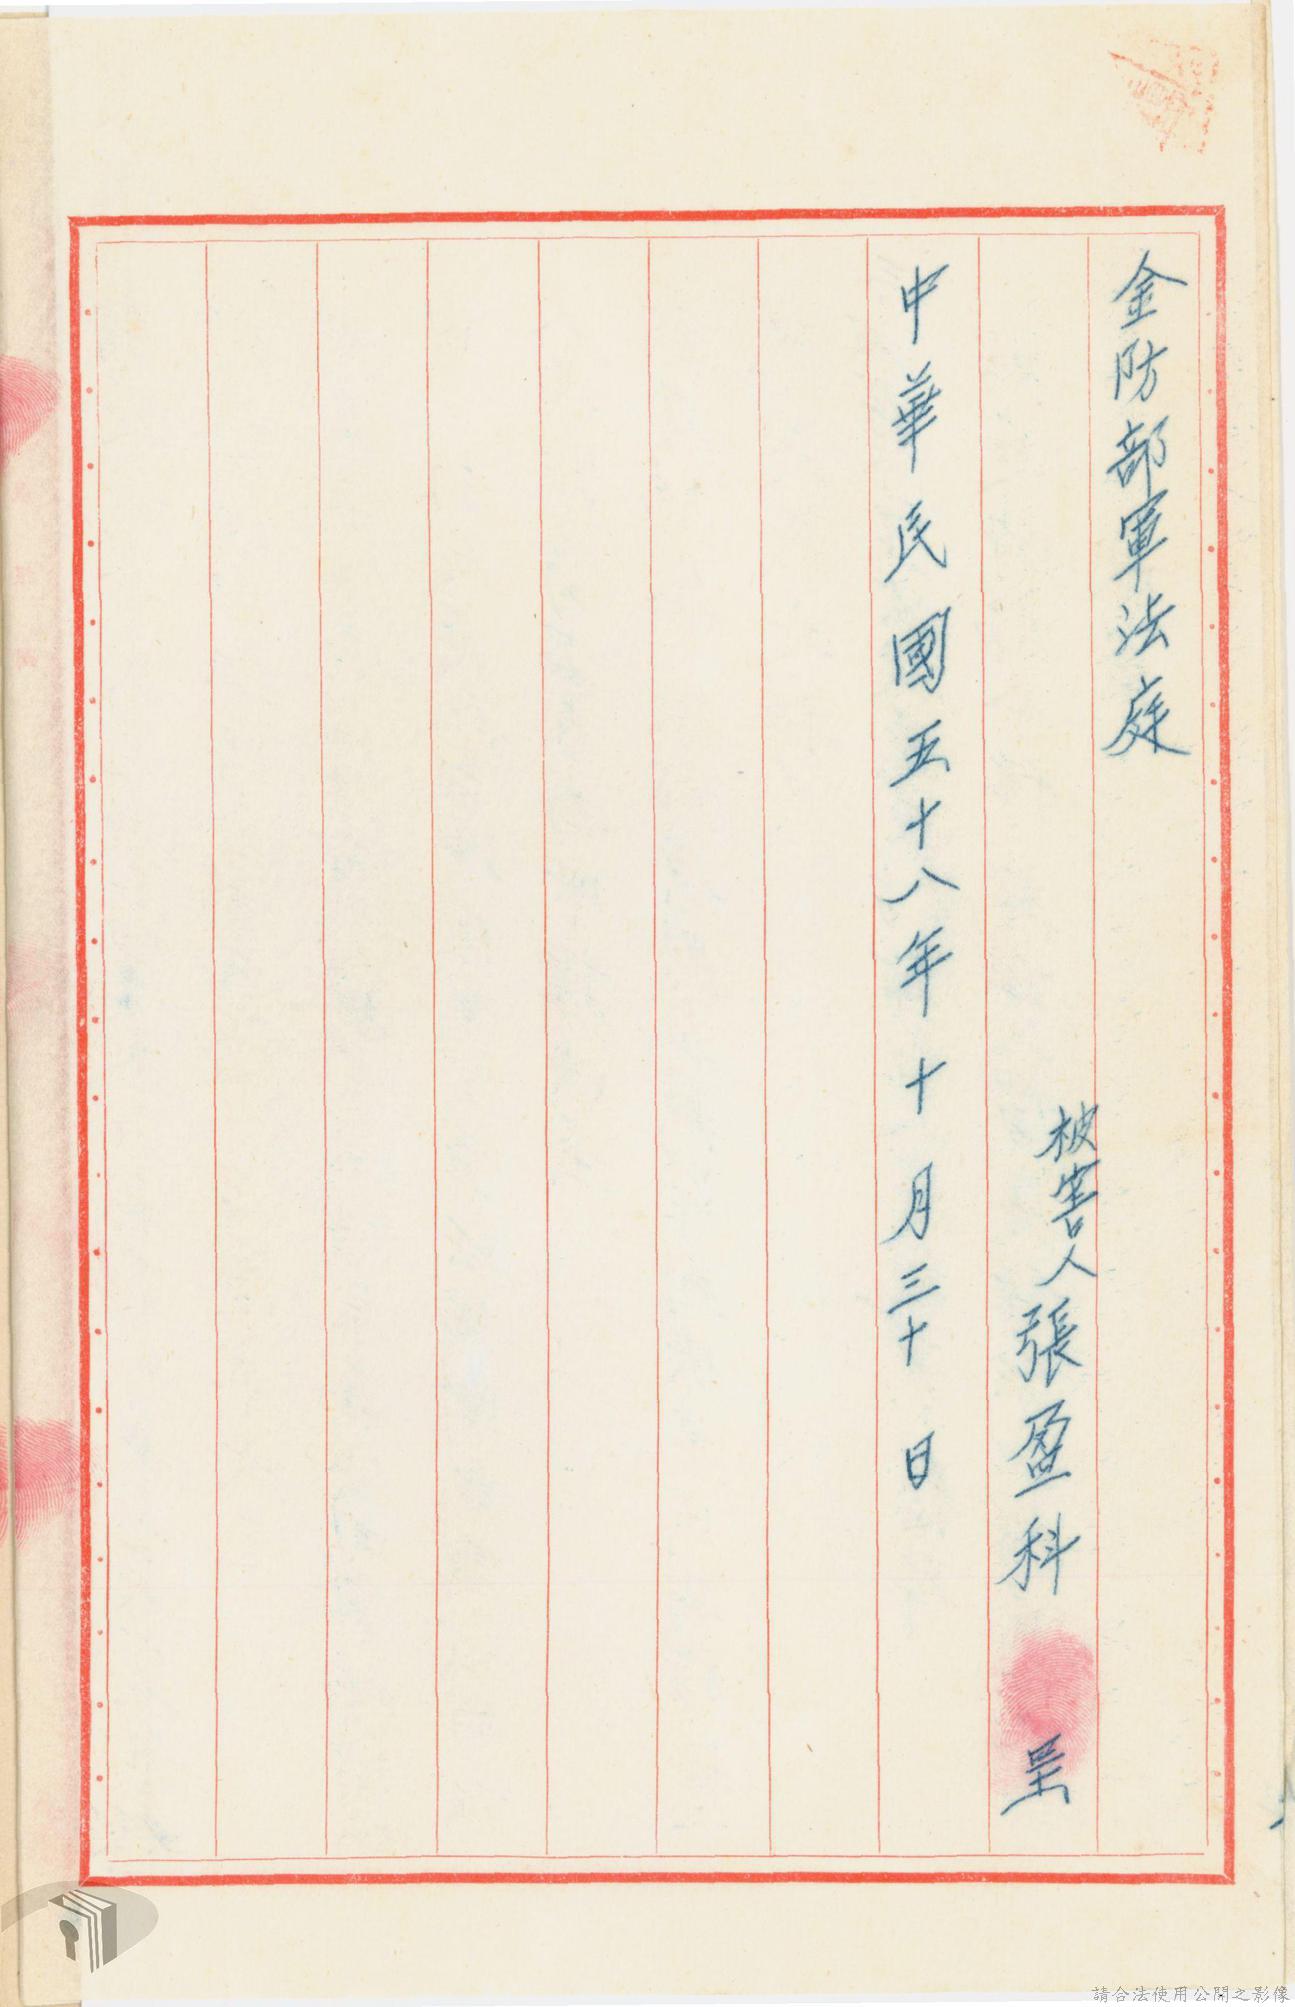 金防部軍法庭
被害人張盈科 呈
中華民國五十八年十月三十日
請合法使用公開之影像